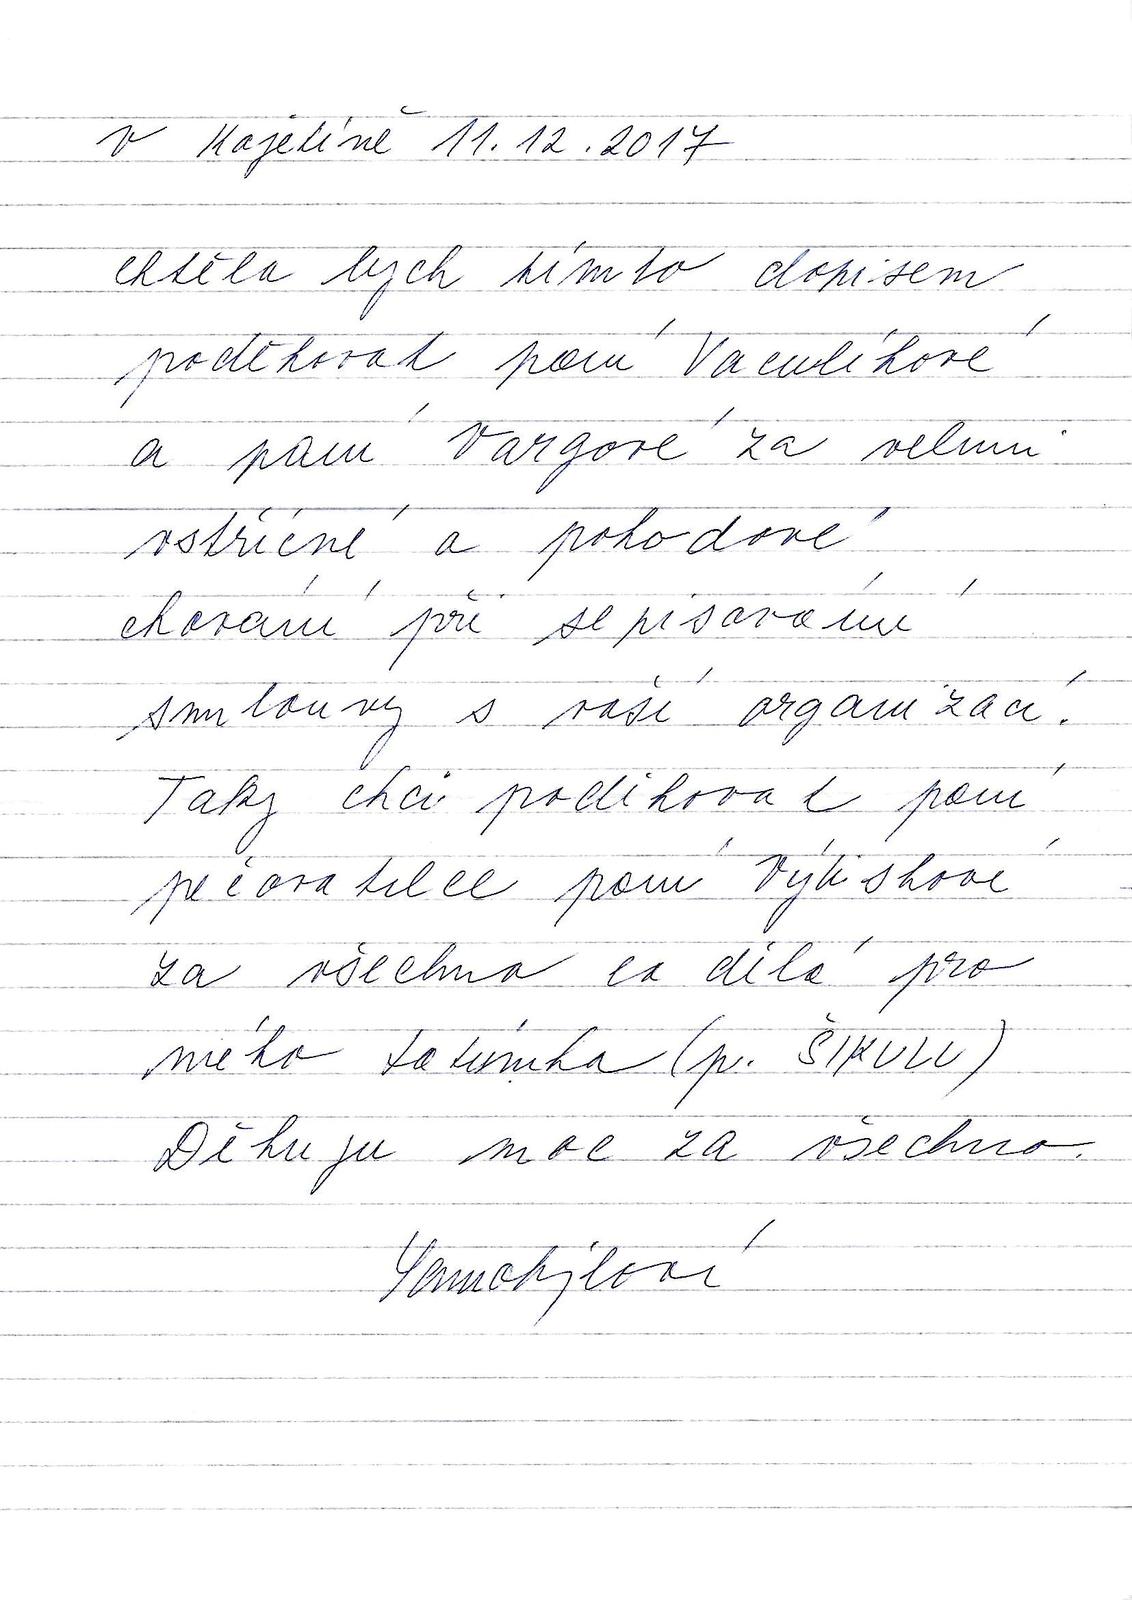 V Kojetíně 11.12.2017
chtěla bych tímto dopisem
poděkovat paní Vaculíkové
a paní Vargové za velmi
vstřícné a pohodové
chování při sepisování
smlouvy s vaší organizací.
Taky chci poděkovat paní
pečovatelce paní Výtiskové
za všechno co dělá pro
mého tatínka (p. ŠIKULU)
Děkuju moc za všechno.